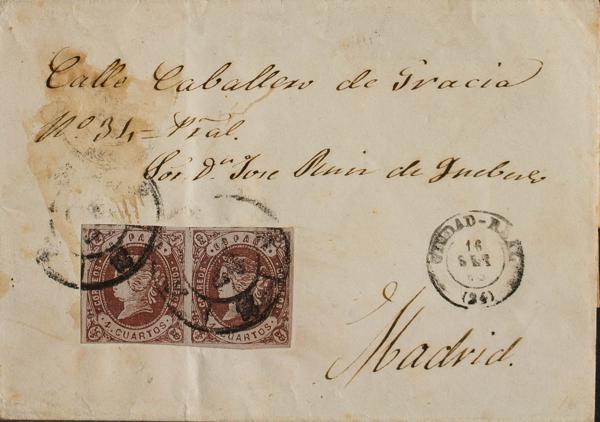 Calle Caballero de Gracia
Nº 34 = Pral.
Sor. Dn. Jose Ruiz de
CIUDAD-REAL
16
SET
(24)
ESPAÑA
CORREOS
4 CUARTOS
ESPAÑA
CORREOS
CUARTOS
Madrid.